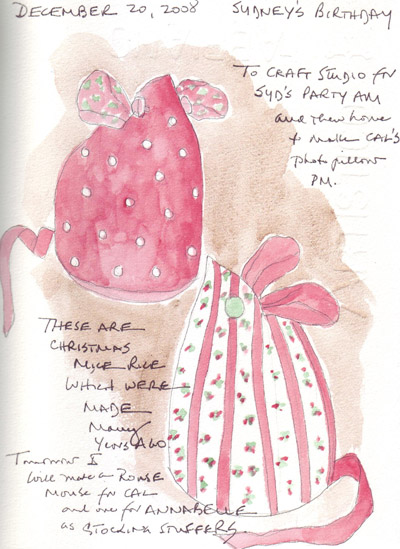 DECEMBER 20, 2008 SYDNEY'S BIRTHDAY
TO CRAFT STUDIO for
SYD'S PARTY AM
and then home
& make CAL'S
photo pillow
PM.
THESE ARE
CHRISTMAS
MICE RICE
WHICH WERE
MADE
Many
YEARS AGO
Tomorrow I
will make a
Mouse for CAL
and one for ANNABELLE
as STOCKING STUFFERS.